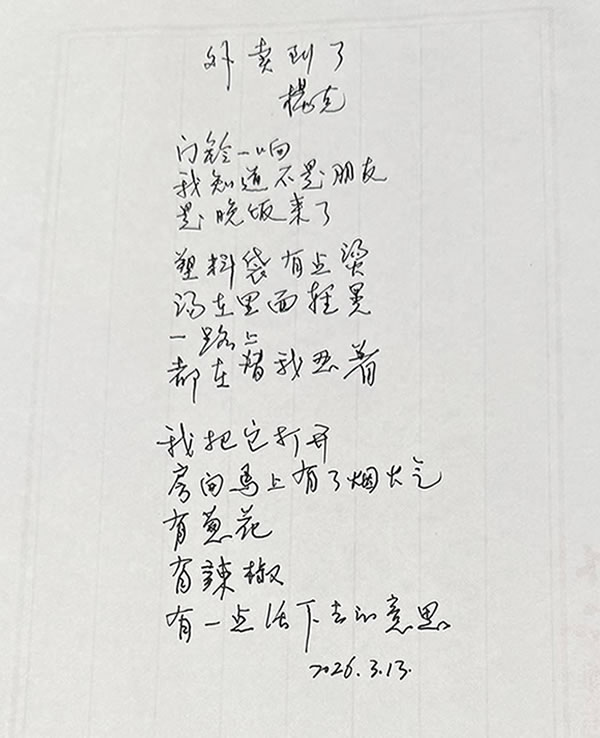 外卖到了
楊克
门铃一响
我知道不是朋友
是晚饭来了
塑料袋有点烫
汤在里面轻晃
一路上
都在替我忍着
我把它打开
房间马上有了烟火气
有葱花
有辣椒
有一点活下去的意思
2026.3.13.